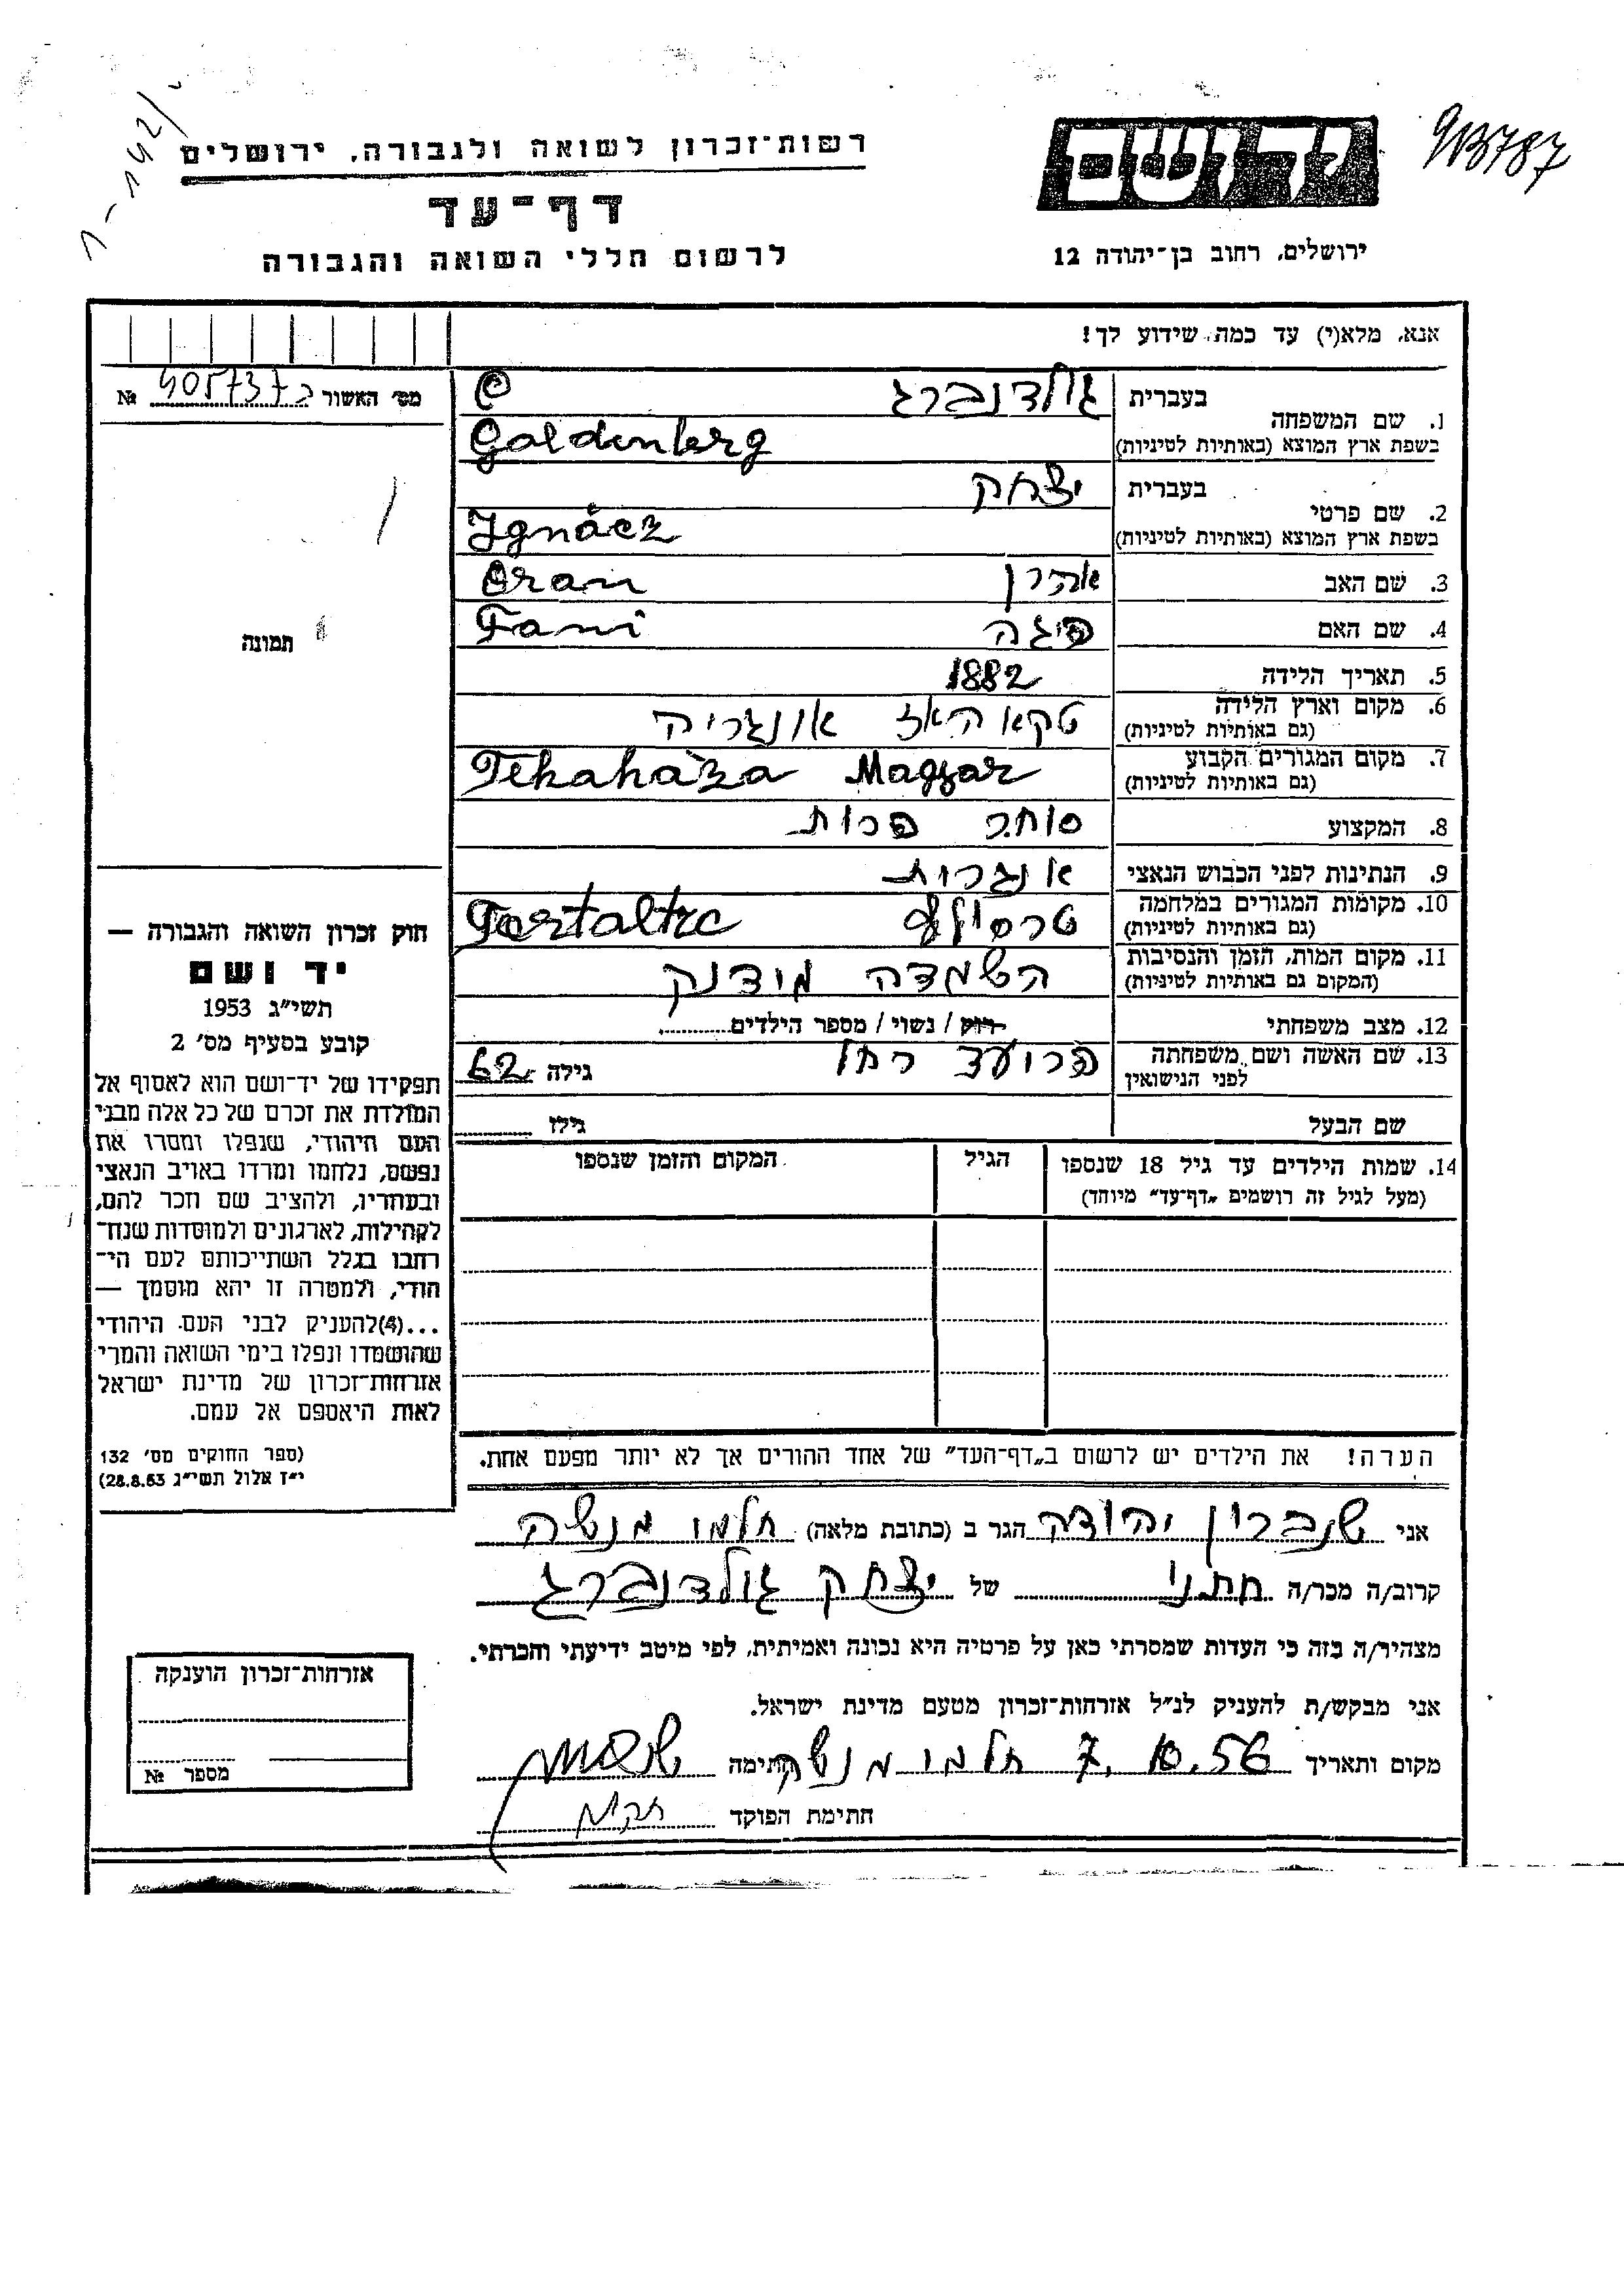 913787
רשות־זכרון לשואה ולגבורה, ירושלים
דף־עד
לרשום חללי השואה והגבורה
ידושם
ירושלים, רחוב בן־יהודה 12
אנא, מלא(י) עד כמה שידוע לך!
מס' האשור № 405737
1. שם המשפחה
בעברית גולדנברג
בשפת ארץ המוצא (באותיות לטיניות) Goldenberg
2. שם פרטי
בעברית יצחק
בשפת ארץ המוצא (באותיות לטיניות) Ignácz
3. שם האב אהרן Oran
4. שם האם פיגה Fani
5. תאריך הלידה 1882
6. מקום וארץ הלידה (גם באותיות לטיניות) טקא האז אונגריה
7. מקום המגורים הקבוע (גם באותיות לטיניות) Tekaháza Magyar
8. המקצוע סוחר פרות
9. הנתינות לפני הכבוש הנאצי אונגרות
10. מקומות המגורים במלחמה (גם באותיות לטיניות)
11. מקום המות, הזמן והנסיבות (המקום גם באותיות לטיניות) השמדה מידנק
12. מצב משפחתי רוק / נשוי / מספר הילדים
13. שם האשה ושם משפחתה לפני הנישואין גילה 62
שם הבעל גילו
14. שמות הילדים עד גיל 18 שנספו
(מעל לגיל זה רושמים „דף־עד" מיוחד)
הגיל
המקום והזמן שנספו
תמונה
חוק זכרון השואה והגבורה —
יד ושם
תשי"ג 1953
קובע בסעיף מס' 2
תפקידו של יד־ושם הוא לאסוף אל
המולדת את זכרם של כל אלה מבני
העם היהודי, שנפלו ומסרו את
נפשם, נלחמו ומרדו באויב הנאצי
ובעוזריו, ולהציב שם וזכר להם,
לקהילות, לארגונים ולמוסדות שנח־
רבו בגלל השתייכותם לעם הי־
הודי, ולמטרה זו יהא מוסמך —
...(4)להעניק לבני העם היהודי
שהושמדו ונפלו בימי השואה והמרי
אזרחות־זכרון של מדינת ישראל
לאות היאספם אל עמם.
(ספר החוקים מס' 132
י"ז אלול תשי"ג 28.8.53)
הערה! את הילדים יש לרשום ב„דף־העד" של אחד ההורים אך לא יותר מפעם אחת.
אני שנברון יהודה הגר ב (כתובת מלאה) תלמי מנשה
קרוב/ה מכר/ה חתני של יצחק גולדנברג
מצהיר/ה בזה כי העדות שמסרתי כאן על פרטיה היא נכונה ואמיתית, לפי מיטב ידיעתי והכרתי.
אני מבקש/ת להעניק לנ"ל אזרחות־זכרון מטעם מדינת ישראל.
מקום ותאריך 7. 10. 56 תלמי מנשה חתימה
חתימת הפוקד
אזרחות־זכרון הוענקה
מספר №